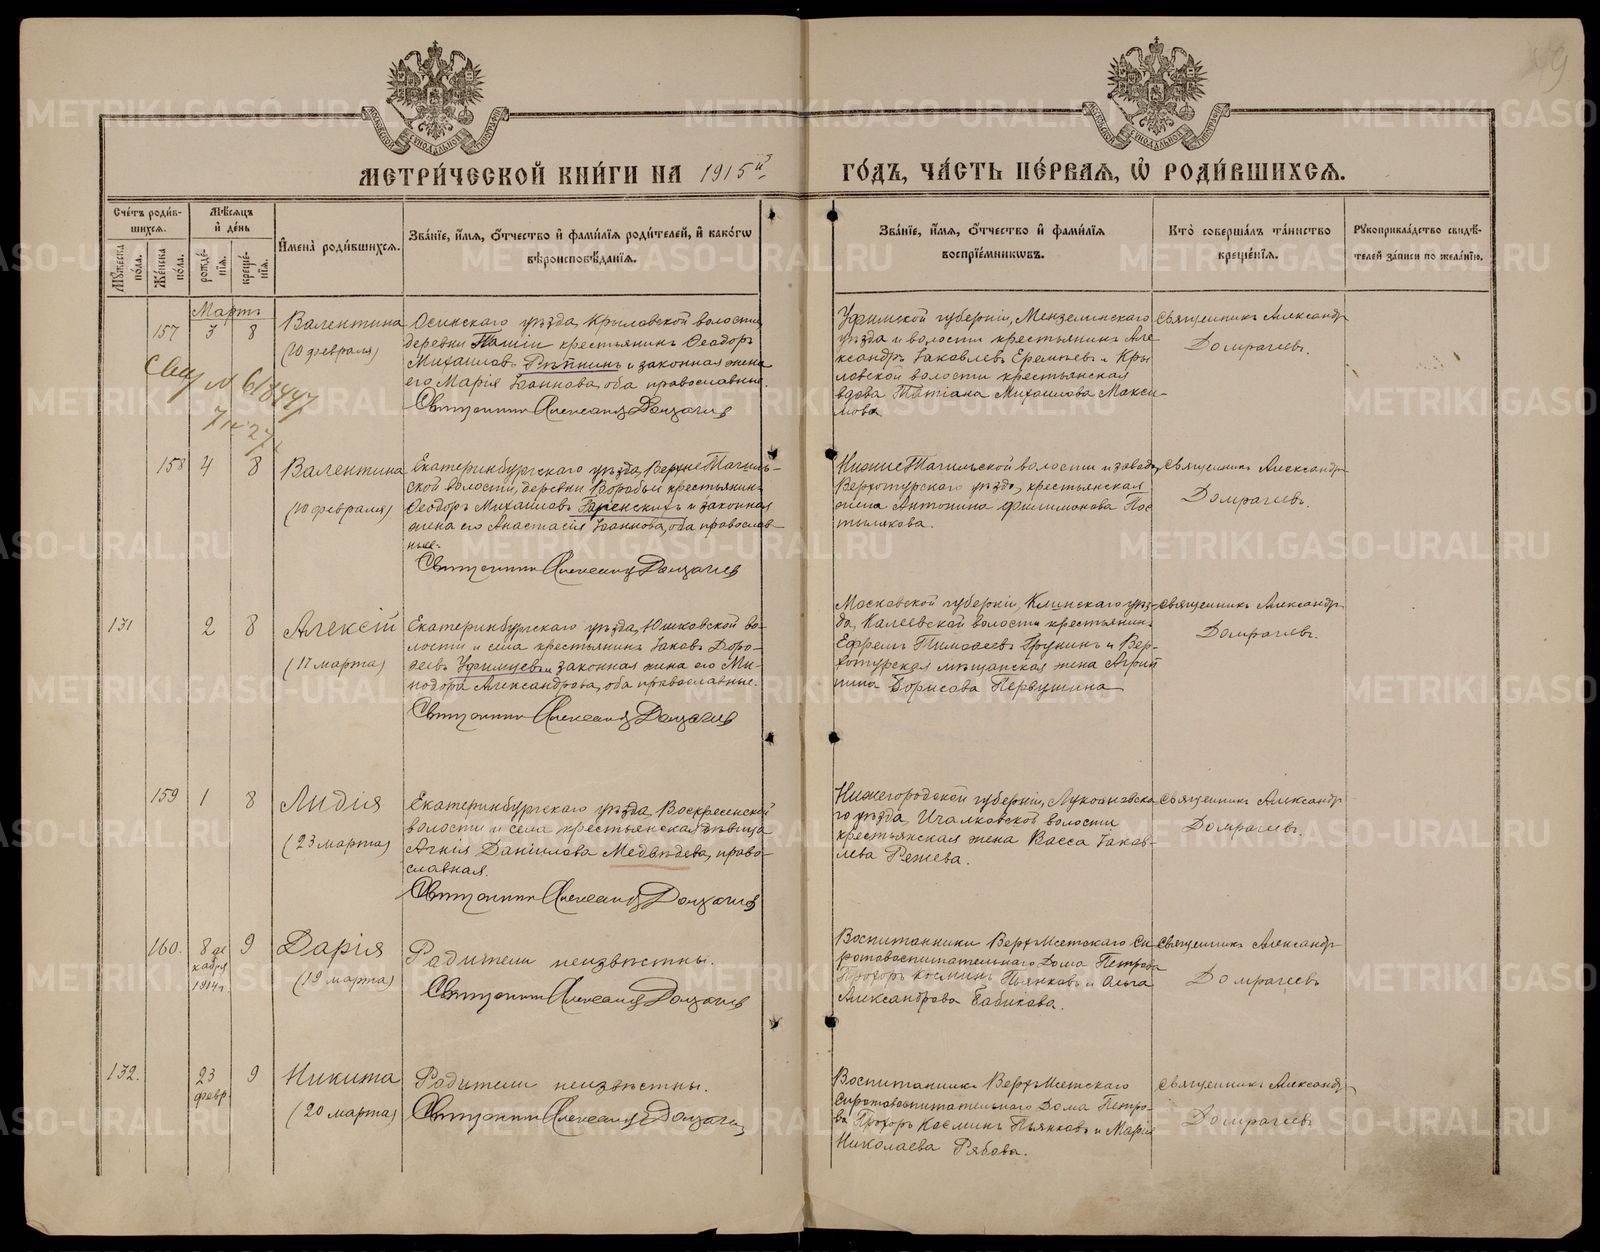 МЕТРИ́ЧЕСКОЙ КНИ́ГИ НА 1915й ГО́ДЪ, ЧА́СТЬ ПЕ́РВАЯ, Ѡ҆ РОДИ́ВШИХСЯ.
Сче́тъ роди́вшихся.
Мꙋ́жеска по́ла.
Же́нска по́ла.
Мѣ́сяцъ и҆ де́нь
рожде́нїѧ.
креще́нїѧ.
И҆мена̀ роди́вшихсѧ.
Зва́нїе, и҆́мѧ, ѻ҆́тчество и҆ фами́лїѧ роди́телей, и҆ како́гѡ
вѣроисповѣ́данїѧ.
Зва́нїе, и҆́мѧ, ѻ҆́тчество и҆ фами́лїѧ
воспрїе́мникѡвъ.
Кто̀ соверша́лъ та́инство
креще́нїѧ.
Рꙋкоприкла́дство свидѣ́-
телей за́писи по жела́нїю.
Мартъ
157 3 8 Валентина
(10 февраля)
Осинскаго уѣзда, Крыловской волости,
деревни крестьянинъ Ѳеодоръ
Михаиловъ Рѣпнинъ и законная жена
его Марія Іоаннова, оба православные.
Священникъ Александръ Домрачевъ
Уфимской губерніи, Мензелинскаго
уѣзда и волости крестьянинъ Але-
ксандръ Іаковлевъ Еремѣевъ и Кры-
ловской волости крестьянская
вдова Татіана Михаилова Макси-
мова
Священникъ Александръ
Домрачевъ.
158 4 8 Валентина
(10 февраля)
Екатеринбургскаго уѣзда, Верхне Тагиль-
ской волости, деревни Воробьи крестьянинъ
Ѳеодоръ Михаиловъ и законная
жена его Анастасія Іоаннова, оба православ-
ные.
Священникъ Александръ Домрачевъ
Нижне Тагильской волости и завода,
Верхотурскаго уѣзда, крестьянская
жена Антонина Филимонова Пос-
тылякова.
Священникъ Александръ
Домрачевъ.
131 2 8 Алексій
(17 марта)
Екатеринбургскаго уѣзда, Юшковской во-
лости и села крестьянинъ Іаковъ Доро-
ѳеевъ Уфимцевъ и законная жена его Ми-
нодора Александрова, оба православные.
Священникъ Александръ Домрачевъ
Московской губерніи, Клинскаго уѣз-
да, Калеевской волости крестьянинъ
Ефремъ Тимоѳеевъ и Вер-
хотурская мѣщанская жена Агрип-
пина Борисова Первушина
Священникъ Александръ
Домрачевъ.
159 1 8 Лидія
(23 марта)
Екатеринбургскаго уѣзда, Воскресенской
волости и села крестьянская дѣвица
Агнія Даніилова Медвѣдева, право-
славная.
Священникъ Александръ Домрачевъ
Нижегородской губерніи, Лукояновска-
го уѣзда, Ичалковской волости
крестьянская жена Васса Іаков-
лева Режева.
Священникъ Александръ
Домрачевъ.
160. 8 де 9 Дарія
кабря
1914 г. (19 марта)
Родители неизвѣстны.
Священникъ Александръ Домрачевъ
Воспитанники Верхъ-Исетскаго Си-
ротовоспитательнаго Дома Петрова
Прохоръ Косминъ Пьянковъ и Ольга
Александрова Бабикова.
Священникъ Александръ
Домрачевъ
132. 23 9 Никита
февр. (20 марта)
Родители неизвѣстны.
Священникъ Александръ Домрачевъ
Воспитанники Верхъ-Исетскаго
Сиротовоспитательнаго Дома Петро-
ва Прохоръ Косминъ Пьянковъ и Марія
Николаева Рябова.
Священникъ Александръ
Домрачевъ
METRIKI.GASO-URAL.RU